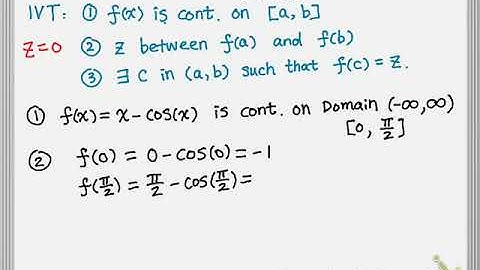 IVT: ① f(x) is cont. on [a, b]
z=0 ② z between f(a) and f(b)
③ ∃ c in (a, b) such that f(c) = z.
① f(x) = x - cos(x) is cont. on Domain (-∞, ∞)
[0, π/2]
② f(0) = 0 - cos(0) = -1
f(π/2) = π/2 - cos(π/2) =